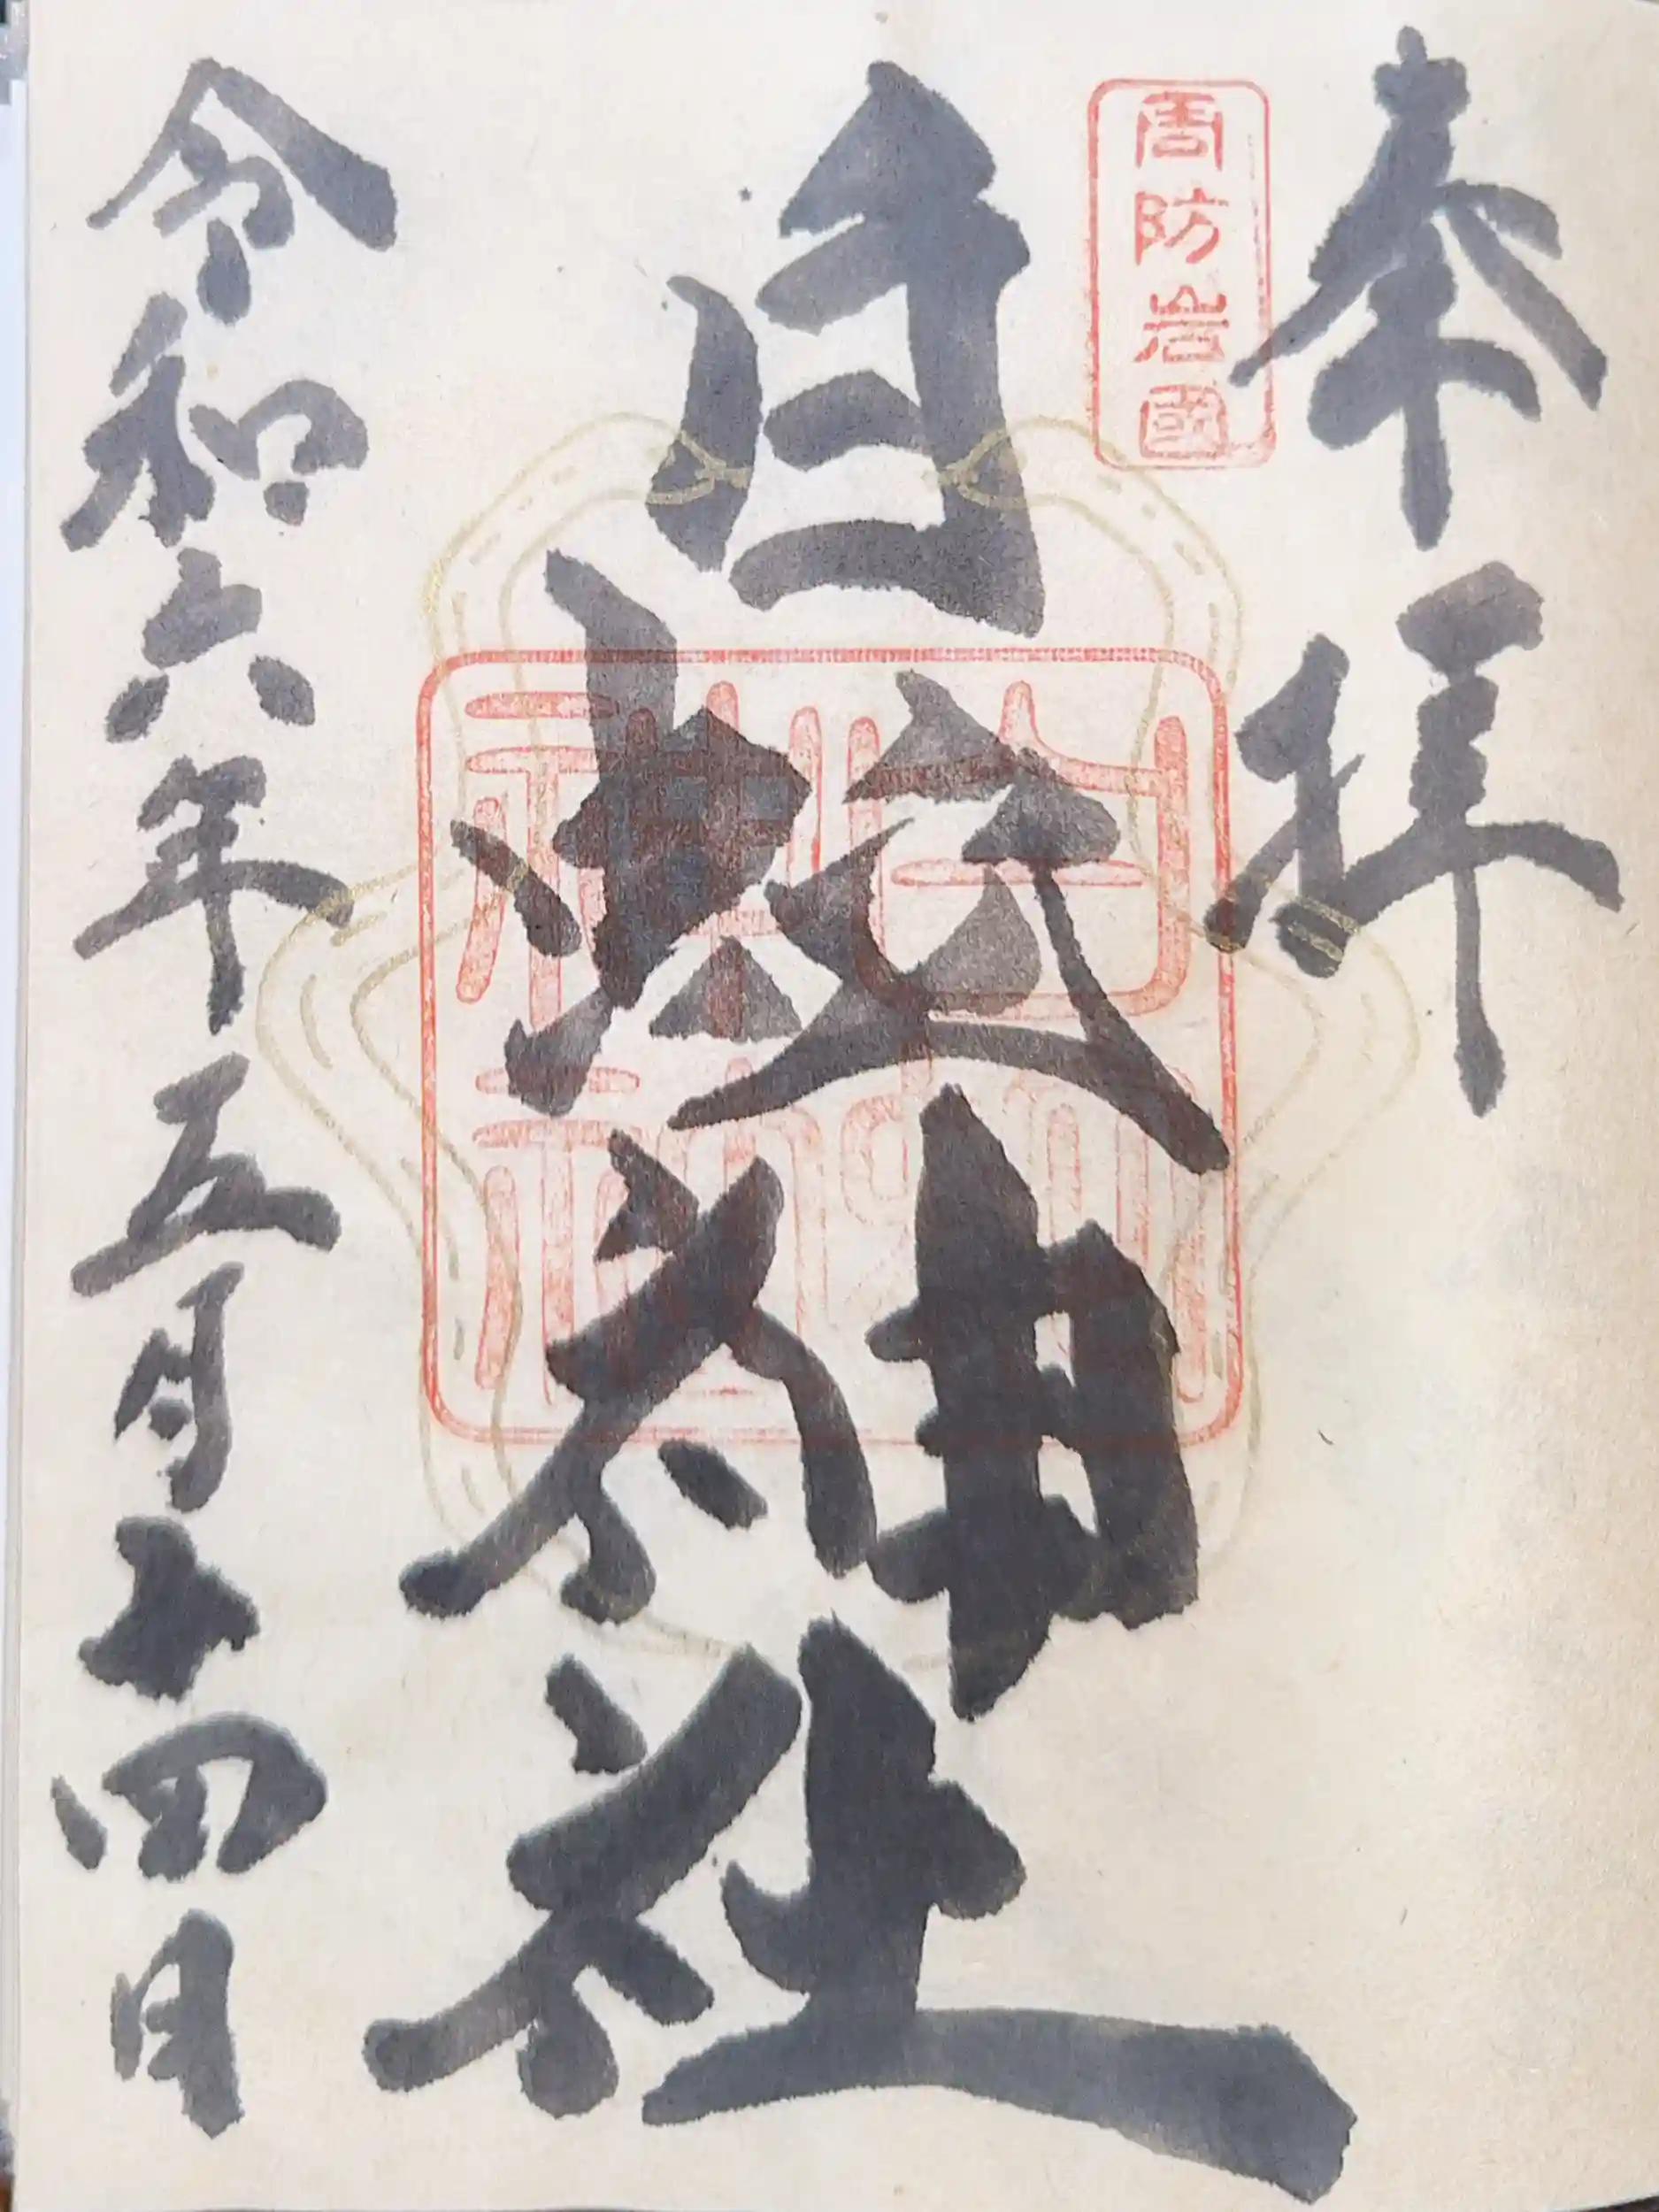 奉拝
周防岩國
白蛇神社
令和六年五月十四日